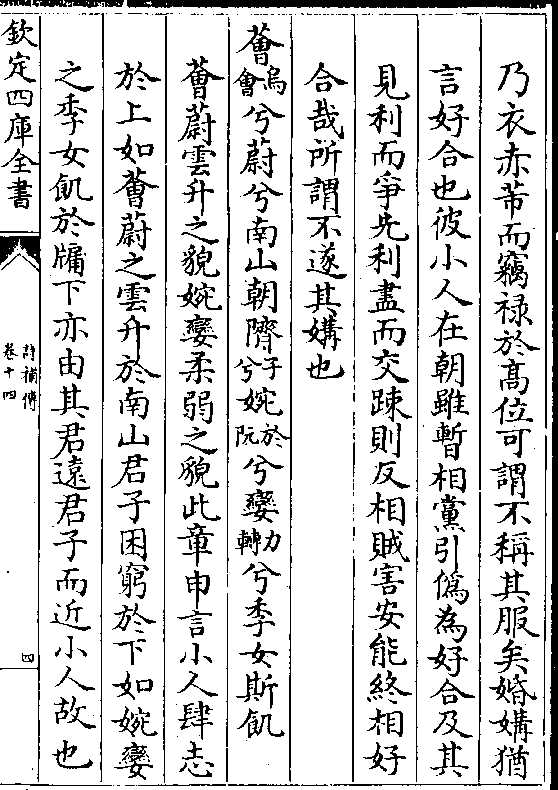 乃衣赤芾而竊禄於髙位可謂不稱其服矣婚媾猶
言好合也彼小人在朝雖暫相黨引僞為好合及其
見利而爭先利盡而交踈則反相賊害安能終相好
合哉所謂不遂其媾也
薈烏會兮蔚兮南山朝隮子兮婉於阮兮孌力轉兮季女斯飢
薈蔚雲升之貌婉孌柔弱之貌此章申言小人肆志
於上如薈蔚之雲升於南山君子困窮於下如婉孌
之季女飢於牖下亦由其君逺君子而近小人故也
欽定四庫全書
詩補傳
卷十四
四